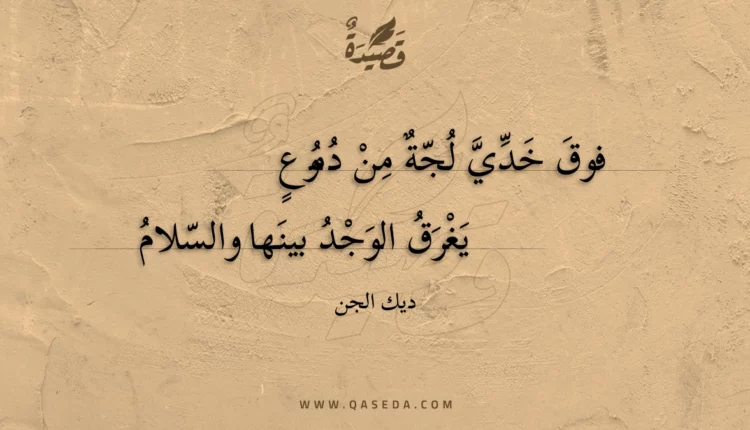 قَصِيدَةٌ
فوقَ خَدِّيَّ لُجّةٌ مِنْ دُمُوعٍ
يَغْرَقُ الوَجْدُ بينَها والسّلامُ
ديك الجن
WWW.QASEDA.COM